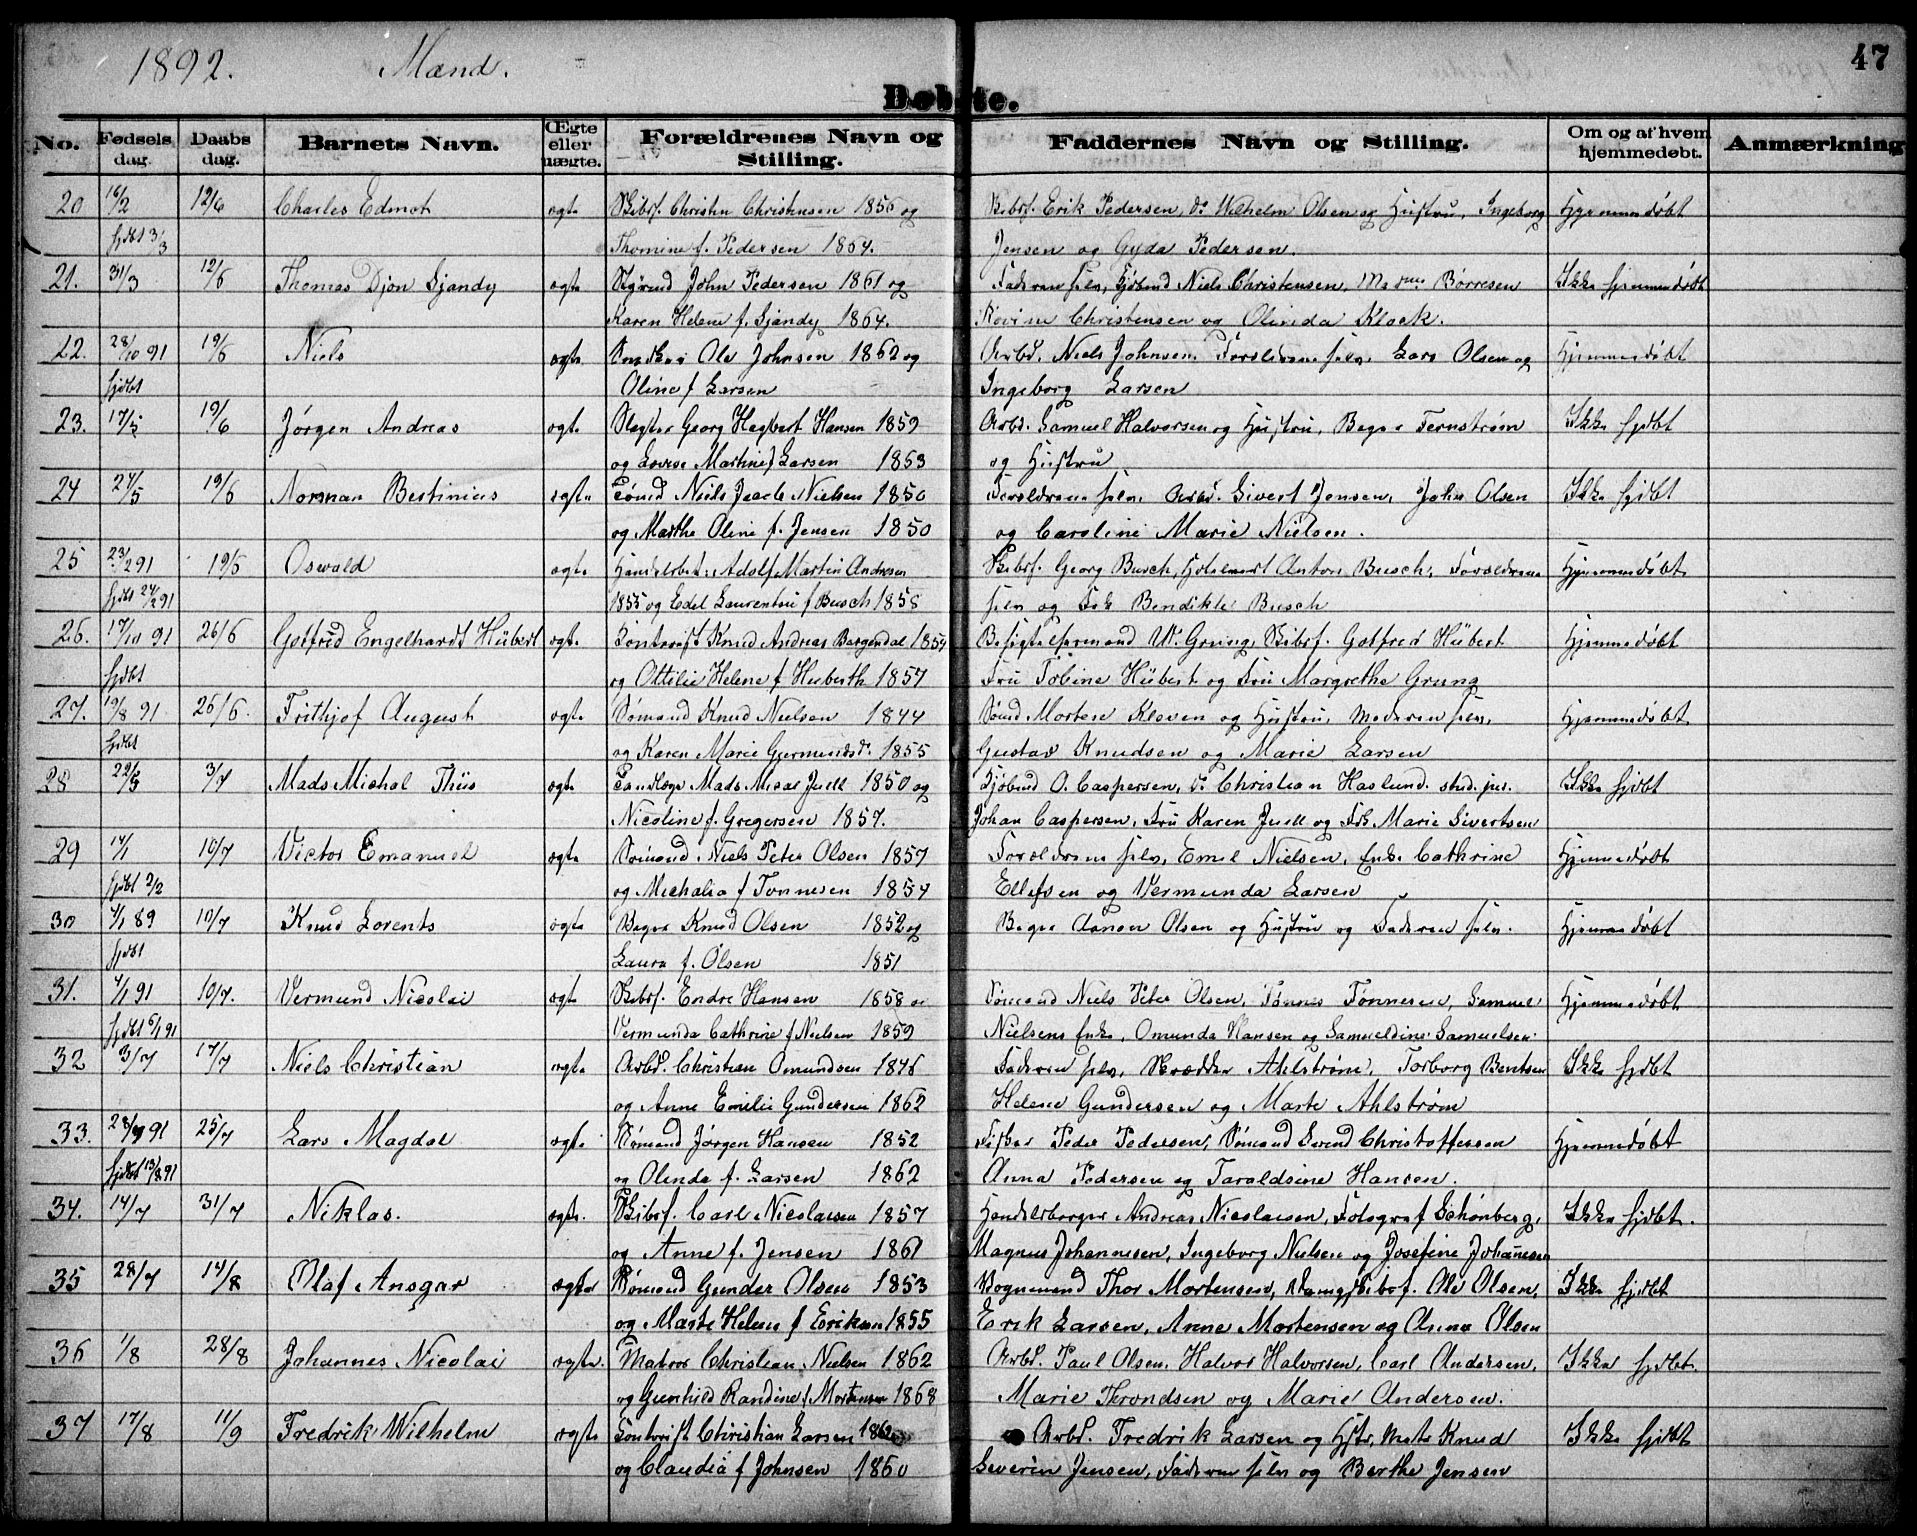 1892. Mænd. 47
Døbte.
No. Fødsels dag. Daabs dag. Barnets Navn. Ægte eller uægte. Forældrenes Navn og Stilling. Faddernes Navn og Stilling. Om og af hvem hjemmedøbt. Anmærkning
20 16/2 12/6 Charles Edmot ægte Skibsf. Christen Christensen 1856 og Skibsf. Erik Pedersen, do Wilhelm Olsen og Hustru, Ingeborg Hjemmedøbt
hjdbt 3/3 Thomine f. Pedersen 1864. Jensen og Gyda Pedersen.
21. 31/3 12/6 Thomas Djon Sjandy ægte John Pedersen 1861 og Faderen selv, Kjøbmd Niels Christensen, Børresen Ikke hjemmedøbt
Karen Helene f. Sjandy 1864. Christensen og Olinda Klock.
22. 28/10 91 19/6 Niels ægte Snedker Ole Johnsen 1862 og Arbd. Niels Johnsen, Forældrene selv, Lars Olsen og Hjemmedøbt
hjdbt Oline f Larsen Ingeborg Larsen
23. 17/5 19/6 Jørgen Andreas ægte Slagter Georg Hagbart Hansen 1859 Arbd. Samuel Halvorsen og Hustru, Bager Fernstrøm Ikke hjdbt
og Lovise Martine f Larsen 1853 og Hustru
24 24/5 19/6 Norman Bestinius ægte Sømd Niels Jacob Nielsen 1850 Forældrene selv, Arbd. Sivert Jensen, John Olsen Ikke hjdbt
og Marthe Oline f. Jensen 1850 og Caroline Marie Nielsen.
25 23/2 91 19/6 Oswald ægte Adolf Martin Andresen Skibsf. Georg Busch, Anton Busch, Forældrene Hjemmedøbt
hjdbt 24/2 91 1855 og Edel Laurentse f Busch 1858 selv og Frk Bendikte Busch
26. 17/10 91 26/6 Gotfred Engelhardt Hübert ægte Knud Andreas Bergendal Gotfred Hübert Hjemmedøbt
hjdbt og Ottilie Helene f Huberth 1857 Fru Tobine Hübert og Fru Margrethe Grung
27. 19/8 91 26/6. Frithjof August ægte Sømand Knud Nielsen 1844 Sømd Morten Kleven og Hustru, Moderen selv, Hjemmedøbt
hjdbt og Karen Marie Gjermundsd. 1855 Gustav Knudsen og Marie Larsen
28 22/5 3/7 Mads Michal Thiis ægte Tandlæge Mads Juell 1850 og Kjøbmd O. Caspersen, do Christian Haslund stud. jur. Ikke hjdbt
Nicoline f. Gregersen 1857. Johan Caspersen, Fru Karen Juell og Frk Marie Sivertsen
29 14/1 10/7 Victor Emanuel ægte Sømand Niels Peter Olsen 1857 Forældrene selv, Emil Nielsen, Enke Cathrine Hjemmedøbt
hjdbt 2/2 og Michalia f Tønnesen 1854 Ellefsen og Vermunda Larsen
30 4/1 89 10/7 Knud Lorents ægte Bager Knud Olsen 1852 og Bager Aanon Olsen og Hustru og Faderen selv. Hjemmedøbt
hjdbt Laura f. Olsen 1851
31. 4/1 91 10/7. Vermund Nicolai ægte Skibsf. Endre Hansen 1858 og Sømand Niels Peter Olsen, Tønnes Tønnesen, Samuel Hjemmedøbt
hjdbt 6/1 91 Vermunda Cathrine f Nielsen 1859 Nielsens Enke, Omunda Hansen og Samueldine Samuelsen.
32 3/7 17/7 Niels Christian ægte Arbd. Christian Omundsen 1846 Faderen selv, Skrædder Ahlstrøm, Torborg Bentsen Ikke hjdbt
og Anne Emilie Gundersen 1862 Helene Gundersen og Marte Ahlstrøm
33. 28/7 91 25/7 Lars Magdal ægte Sømand Jørgen Hansen 1852 Fisker Peder Pedersen, Sømand Svend Christoffersen Hjemmedøbt
hjdbt 13/8 91 og Olinda f. Larsen 1862 Anna Pedersen og Taraldsine Hansen.
34. 14/7 31/7 Niklas. ægte. Skibsf. Carl Nicolaisen 1857 Handelsborger Andreas Nicolaisen, Fotograf Schønberg, Ikke hjdbt.
og Anne f. Jensen 1861 Magnus Johannesen, Ingeborg Nielsen og Josefine Johannesen
35 28/7 14/8 Olaf Ansgar ægte Sømand Gunder Olsen 1853 Vognmand Thor Mortensen, Ole Olsen, Ikke hjdbt
og Marte Helene f Eriksen 1855 Erik Larsen, Anne Mortensen og Anna Olsen
36 1/8 28/8 Johannes Nicolai ægte. Matros Christian Nielsen 1862 Arbd. Paul Olsen, Halvor Halvorsen, Carl Andersen, Ikke hjdbt.
og Gunhild Randine f Mortensen 1868 Marie Throndsen og Marie Andersen.
37 17/8 11/9 Fredrik Wilhelm ægte Christian Larsen Arbd. Fredrik Larsen og Hstr, Mats Knud Ikke hjdbt
og Claudia f Johnsen 1860 Severin Jensen, Faderen selv og Berthe Jensen